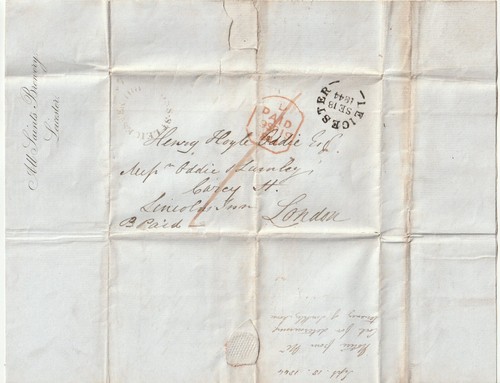 All Saints Brewery
Leicester
LEICESTER
SE 18
1844
L
PAID
Henry Hoyle Oddie Esqr.
Messrs Oddie & Lumley
Carey St.
Lincolns Inn London
B Paid
Sept. 18. 1844
Notice from Mr
for determining
Tenancy of